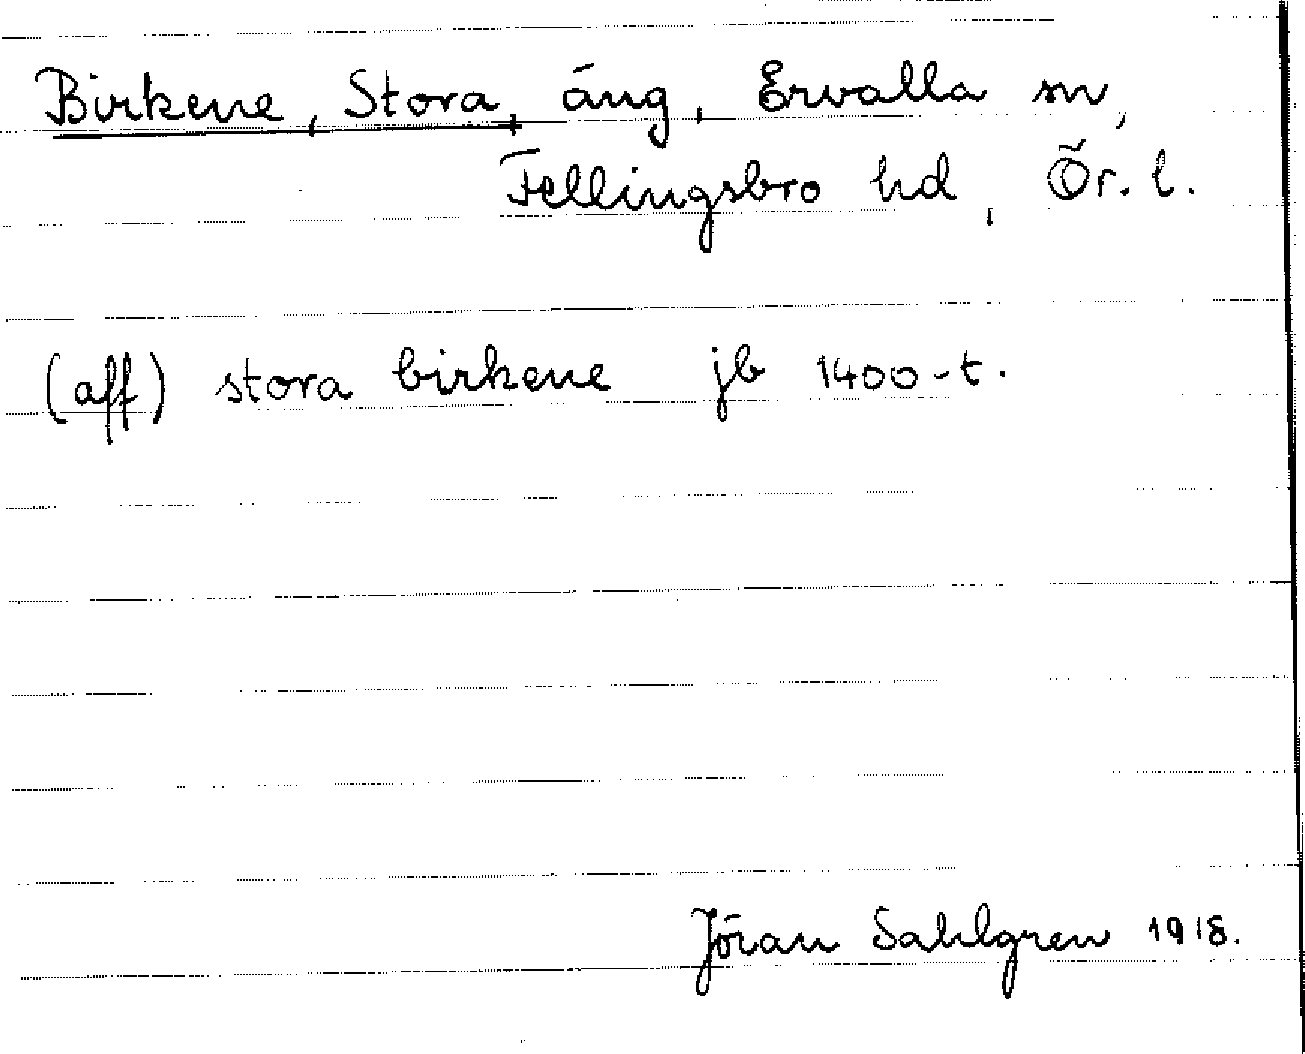 Birkene, Stora, äng, Ervalla sn,
Fellingsbro hd, Ör. l.
(aff) stora birkene jb 1400-t.
Jöran Sahlgren 1918.